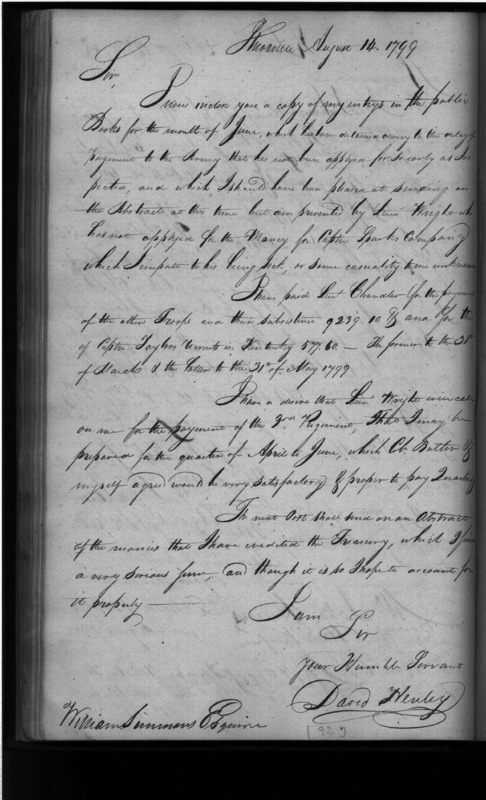 Knoxville August 14. 1799
Sir,
I now inclose you a copy of my entrys in the public
Books for the month of June, which has been detained owing to the delay of
payment to the Army that has not been applied for so early as I ex
pected, and which I should have been pleased at sending on
the Abstracts at this time but am prevented by Lieu Wright who
has not applyed for the Money for Captn Sparks Company
which I impute to his being sick, or some casuality to me unknown
I have paid Lieu Chandler for the payment
of the other Troops and their subsistence 9239.10 & and for the
of Captn Taylors recruits in Kentucky 577.60 — The former to the 31
of March & the latter to the 31st of May 1799
I have a desire that Lieu Wright would call
on me for the payment of the 3rd Regiment, that I may be
prepared for the quarter of April to June, which Co. Butler &
myself agreed would be very satisfactory & proper to pay Quarterly
Th next Post shall send on an Abstract
of the monies that I have credited the Treasury, which I find
a very serious sum, and though it is so I hope to account for
it properly —
I am
Sir
Your Humble Servant
David Henley
William Simmons Esquire
[92]